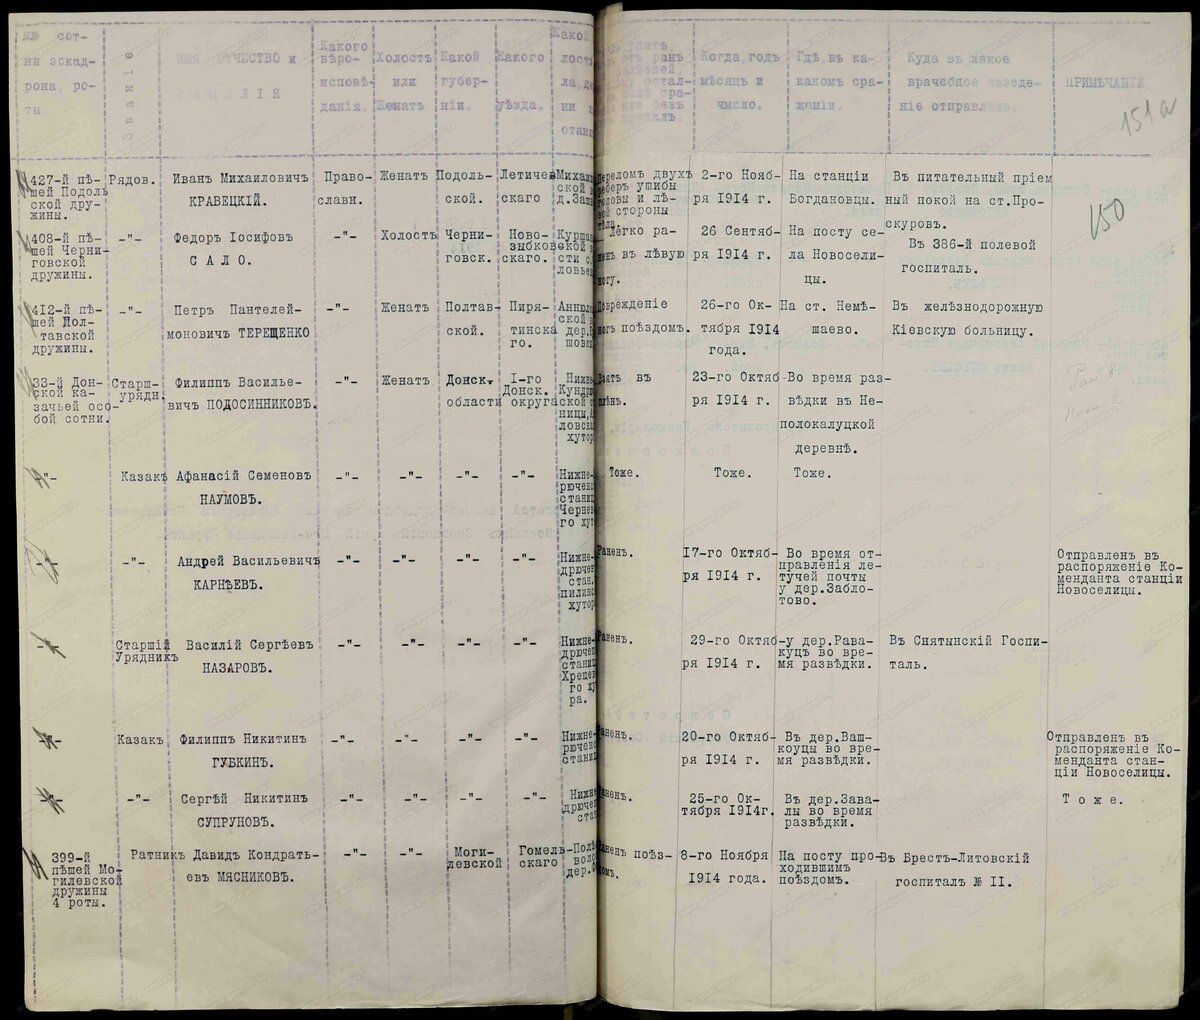 №№ сот-
ни эскад-
рона, ро-
ты
Званіе
ИМЯ ОТЧЕСТВО и
ФАМИЛІЯ
Какого
вѣро-
исповѣ-
данія.
Холостъ
или
Женатъ
Какой
губер-
ніи.
Какого
уѣзда.
Какой
Когда годъ
мѣсяцъ и
число.
Гдѣ въ ка-
комъ сра-
женіи.
Куда въ какое
врачебное заведе-
ніе отправленъ.
ПРИМѢЧАНІЕ.
151а
150
427-й пѣ-
шей Подоль
ской дру-
жины.
Рядов.
Иванъ Михаиловичъ
КРАВЕЦКІЙ.
Право-
славн.
Женатъ
Подоль-
ской.
Летичев
скаго
Михаил
ской в
д.Заш
Переломъ двухъ
реберъ ушибы
головы и лѣ-
вой стороны
тѣла.
2-го Нояб-
ря 1914 г.
На станціи
Богдановцы.
Въ питательный пріем
ный покой на ст.Про-
скуровъ.
408-й пѣ-
шей Черни-
говской
дружины.
-"-
Федоръ Іосифовъ
С А Л О.
-"-
Холостъ
Черни-
говск.
Ново-
зыбков
скаго.
Легко ра-
ненъ въ лѣвую
ногу.
26 Сентяб-
ря 1914 г.
На посту се-
ла Новосели-
цы.
Въ 386-й полевой
госпиталь.
412-й пѣ-
шей Пол-
тавской
дружины.
-"-
Петръ Пантелей-
моновичъ ТЕРЕЩЕНКО
-"-
Женатъ
Полтав-
ской.
Пиря-
тинска
го.
Поврежденіе
ногъ поѣздомъ.
26-го Ок-
тября 1914
года.
На ст. Немѣ-
шаево.
Въ желѣзнодорожную
Кіевскую больницу.
33-й Дон-
ской ка-
зачьей осо-
бой сотни.
Старш-
урядн.
Филиппъ Василье-
вичъ ПОДОСИННИКОВЪ.
-"-
Женатъ
Донск.
области
I-го
Донск.
округа
Нижне-
Кундрю
ской с
ницы,
ловска
хутор
Взятъ въ
плѣнъ.
23-го Октяб-
ря 1914 г.
Во время раз-
вѣдки въ Не-
полокалуцкой
деревнѣ.
-"-
Казакъ
Афанасій Семеновъ
НАУМОВЪ.
-"-
-"-
-"-
-"-
Нижне-
рюченс
станиц
Чернев
го хут
Тоже.
Тоже.
Тоже.
-"-
-"-
Андрей Васильевичъ
КАРНѢЕВЪ.
-"-
-"-
-"-
-"-
Нижне-
дрючен
стан.
пилинс
хутор
Раненъ.
17-го Октяб-
ря 1914 г.
Во время от-
правленія ле-
тучей почты
у дер.Забло-
тово.
Отправленъ въ
распоряженіе Ко-
менданта станціи
Новоселицы.
-"-
Старшій
Урядникъ
Василій Сергѣевъ
НАЗАРОВЪ.
-"-
-"-
-"-
-"-
Нижне-
дрючен
станиц
Хрещев
го ху
ра.
Раненъ.
29-го Октяб-
ря 1914 г.
у дер.Рава-
куцъ во вре-
мя развѣдки.
Въ Снятынскій Госпи-
таль.
-"-
Казакъ
Филиппъ Никитинъ
ГУБКИНЪ.
-"-
-"-
-"-
-"-
Нижне-
рюченс
станиц
Раненъ.
20-го Октяб-
ря 1914 г.
Въ дер.Ваш-
коуцы во вре-
мя развѣдки.
Отправленъ въ
распоряженіе Ко-
менданта стан-
ціи Новоселицы.
-"-
-"-
Сергѣй Никитинъ
СУПРУНОВЪ.
-"-
-"-
-"-
-"-
Нижне
дрючен
ста
Раненъ.
25-го Ок-
тября 1914г.
Въ дер.Зава-
лы во время
развѣдки.
Т о ж е.
399-й
пѣшей Мо-
гилевской
дружины
4 роты.
Ратникъ
Давидъ Кондрать-
евъ МЯСНИКОВЪ.
-"-
-"-
Моги-
левской
Гомель-
скаго
Раненъ поѣз-
домъ.
8-го Ноября
1914 года.
На посту про-
ходившимъ
поѣздомъ.
Въ Брестъ-Литовскій
госпиталъ № II.